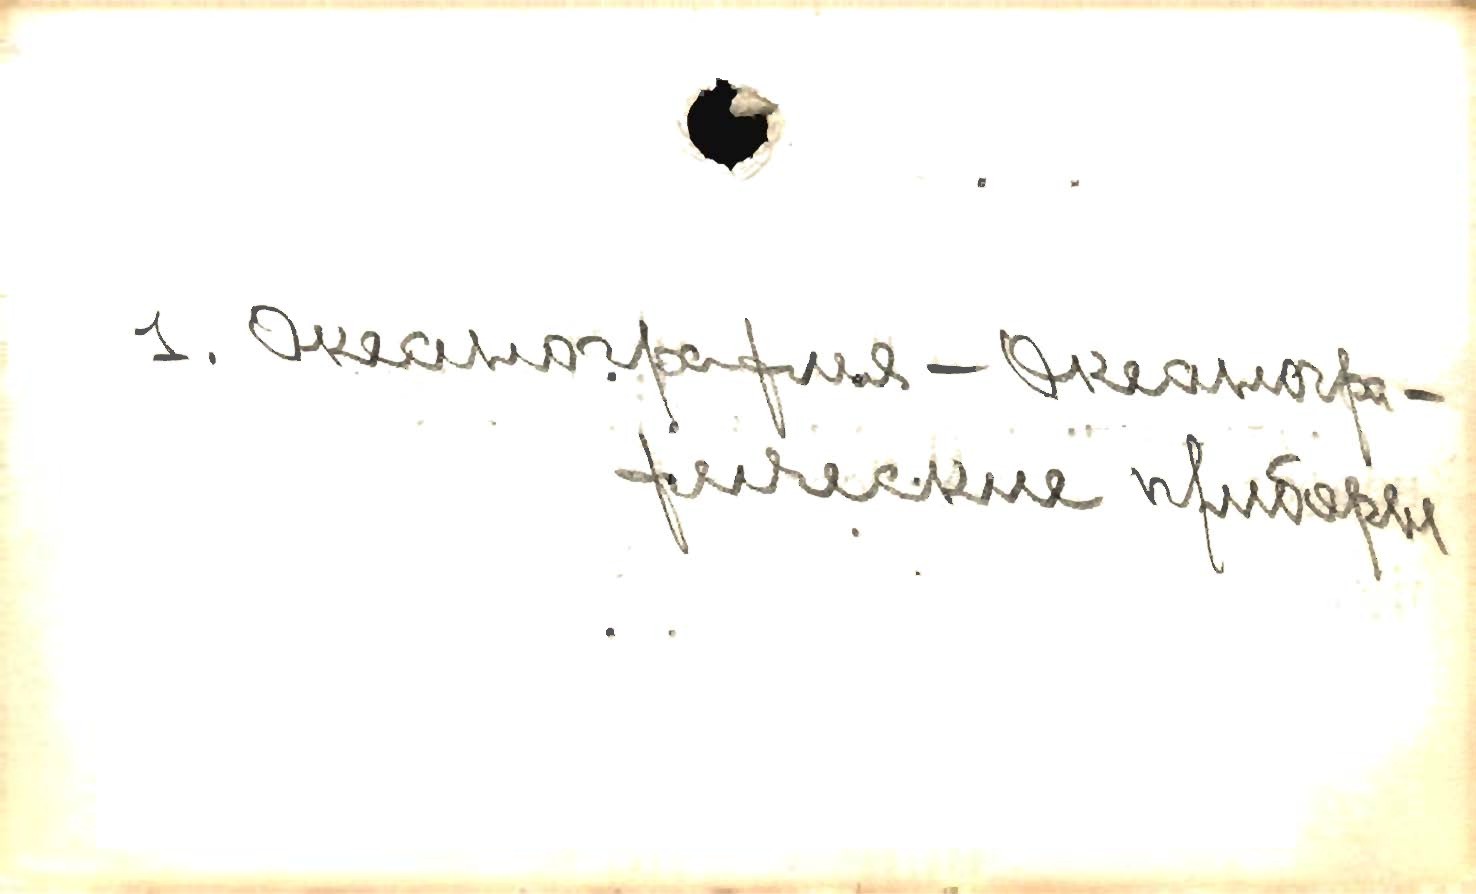 1. Океанография — Океаногра-
фические приборы